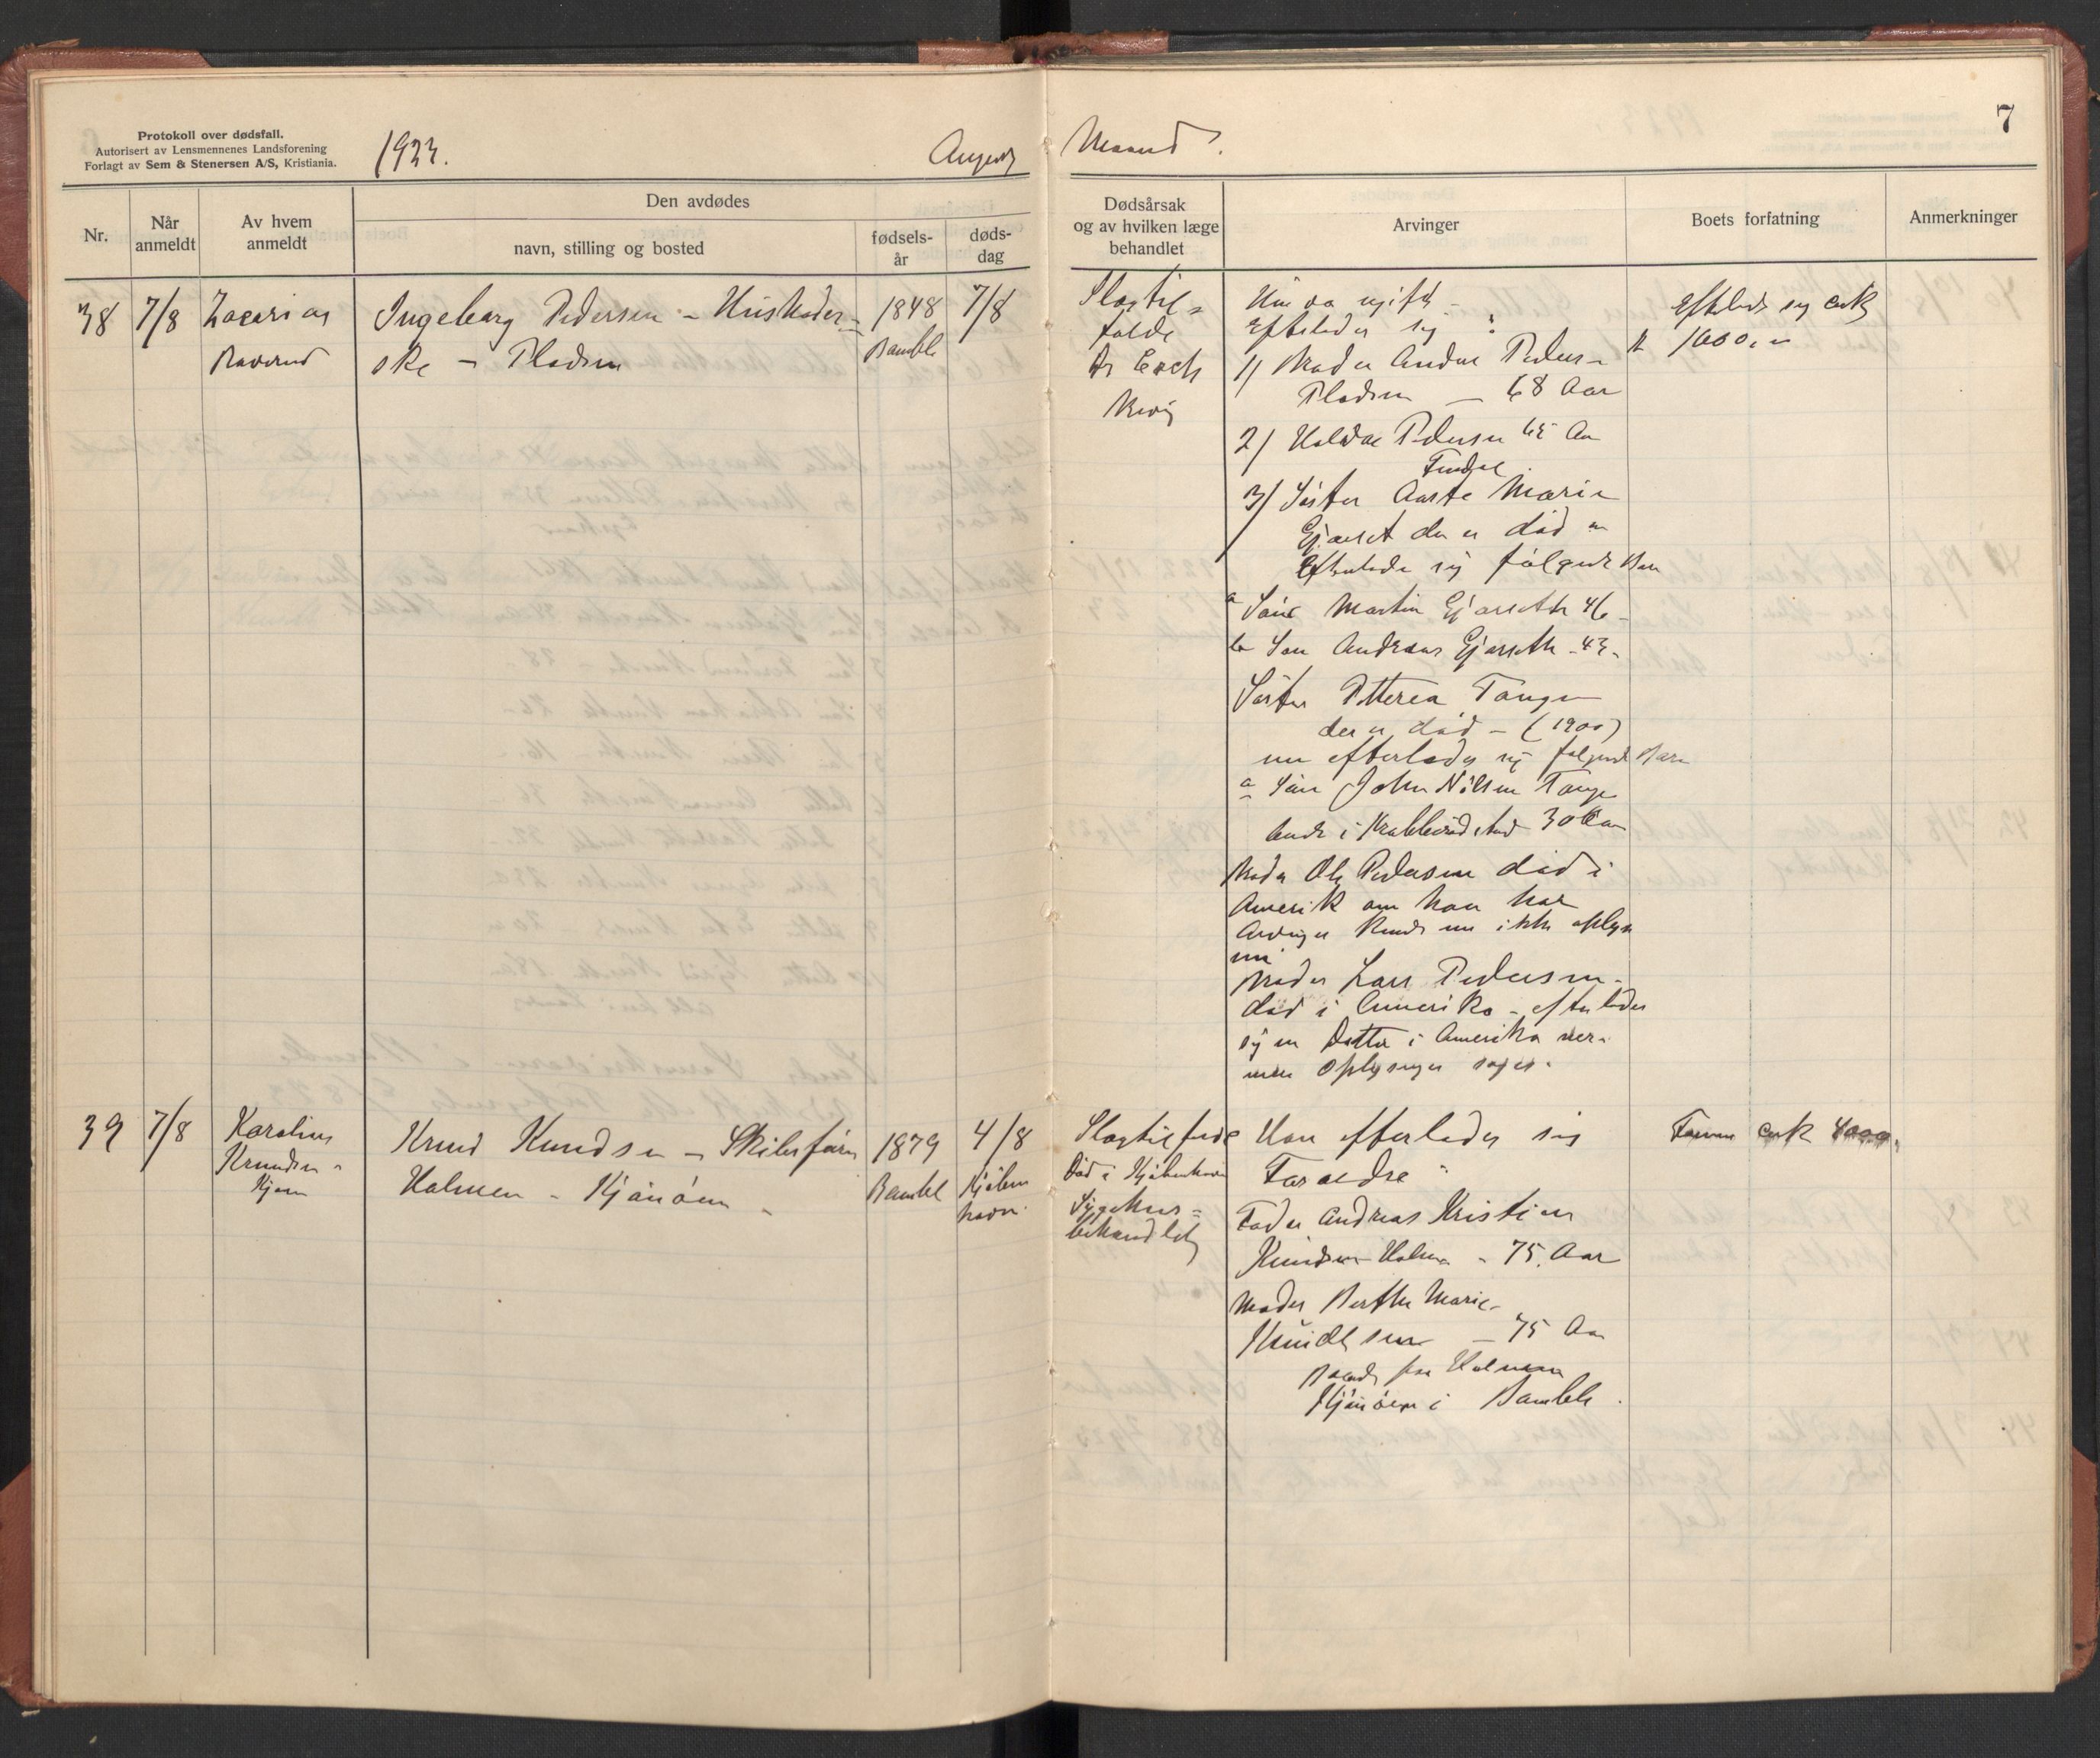 Protokoll over dødsfall.
Autorisert av Lensmennenes Landsforening
Forlagt av Sem & Stenersen A/S, Kristiania.
1923.
August
Maaned
7
Nr.
Når anmeldt
Av hvem anmeldt
Den avdødes
navn, stilling og bosted
fødsels-år
døds-dag
Dødsårsak og av hvilken læge behandlet
Arvinger
Boets forfatning
Anmerkninger
38
7/8
Zacarias
Raverud
Ingeborg Pedersen - Husholder-
ske - Pladsen
1848
Bamble
7/8
Slagtil-
fælde
Dr Esch
Brevig
Hun va ugift -
Efterlader sig :
1/ Broder Andor Peders-
Pladsen - 68 Aar
2/ Haldor Pedersen 65 Aar
3/ Søster Aaste Marie
Gjerset der er død
Efterlader sig følgende Barn
a Søn Martin Gjærseth 46 -
b Søn Andreas Gjærseth - 43 -
Søster Petterea Tangen
der er død - (1900)
efterlader sig følgende Barn
a Søn John Nilsen Tangen
i Krabberødstrand 30 Aar
Broder Ole Pedersen død i
Amerik om han har
Arvinger kunde ikke oplyses
Broder Lars Pedersen -
død i Amerika - efterlader
sig en Datter i Amerika nær-
mere Oplysninger
Efterlader sig cirk
kr 1000,-
39
7/8
Karolius
Knudsen -
Knud Knudsen - Skibsfører
Halmen - Kjønøen -
1879
Bamble
4/8
Kjøben
havn.
Slagtilfælde
Død i Kjøbenhavn
Sygehus-
behandlet
Han efterlader sig
Foraeldre :
Fader Andreas Kristian
Knudsen Halmen - 75 Aar
Moder Berthe Marie
Knudsen - 75 Aar
Baade fra Halmen
Kjønøen i Bamble.
Formue cirk 4000,